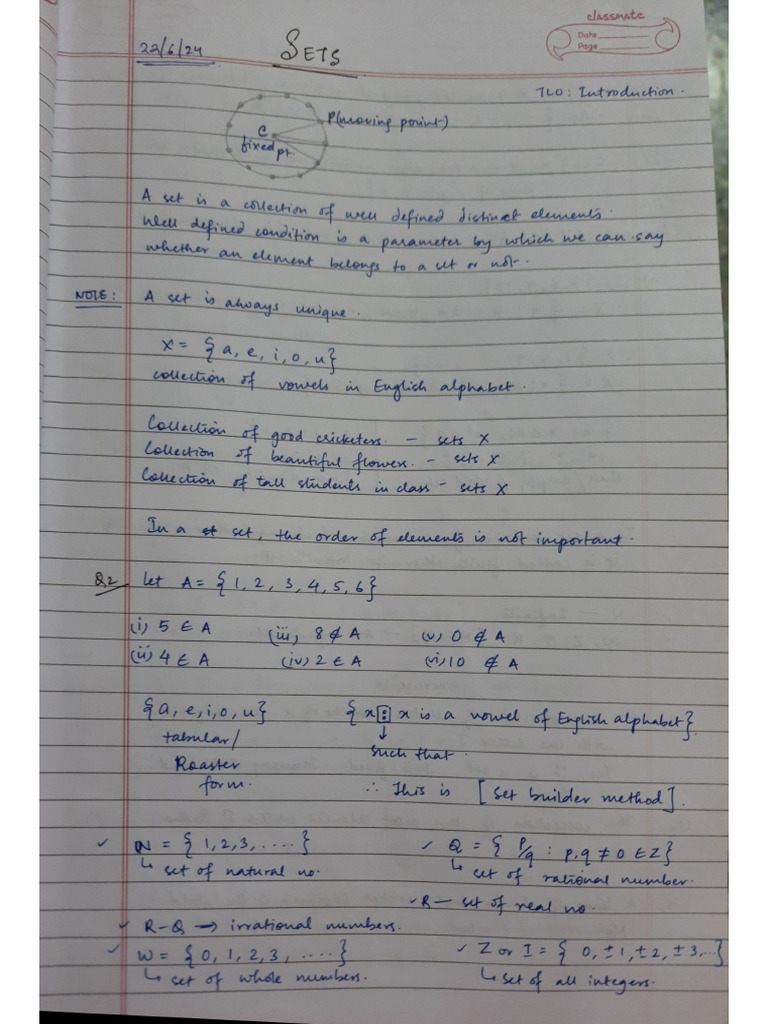 classmate
Date
Page
22/6/24
SETS
TLO: Introduction.
P(moving point)
C
fixed pt.
A set is a collection of well defined distinct elements.
Well defined condition is a parameter by which we can say
whether an element belongs to a set or not.
NOTE: A set is always unique.
X = {a, e, i, o, u}
collection of vowels in English alphabet.
Collection of good cricketers. - sets X
Collection of beautiful flowers. - sets X
Collection of tall students in class - sets X
In a set, the order of elements is not important.
Q.2 let A = {1, 2, 3, 4, 5, 6}
(i) 5 ∈ A (iii) 8 ∉ A (v) 0 ∉ A
(ii) 4 ∈ A (iv) 2 ∈ A (vi) 10 ∉ A
{a, e, i, o, u} {x : x is a vowel of English alphabet}
tabular/ ↓
such that.
Roaster
form. ∴ This is [set builder method].
✓ N = {1, 2, 3, ....} ✓ Q = {p/q : p, q ≠ 0 ∈ Z}
↳ set of natural no. ↳ set of rational number.
✓ R — set of real no.
✓ R-Q → irrational numbers.
✓ W = {0, 1, 2, 3, ....} ✓ Z or I = {0, ±1, ±2, ±3,...}
↳ set of whole numbers. ↳ set of all integers.